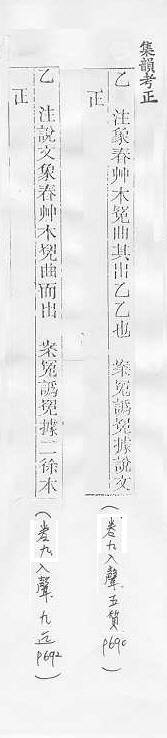 集韻考正
乙 注象春艸木冤曲其出乙乙也 案冤譌寃據說文
正
(卷九入聲五質P690)
乙 注說文象春艸木寃曲而出 案冤譌寃據二徐本
正
(卷九入聲九迄P692)